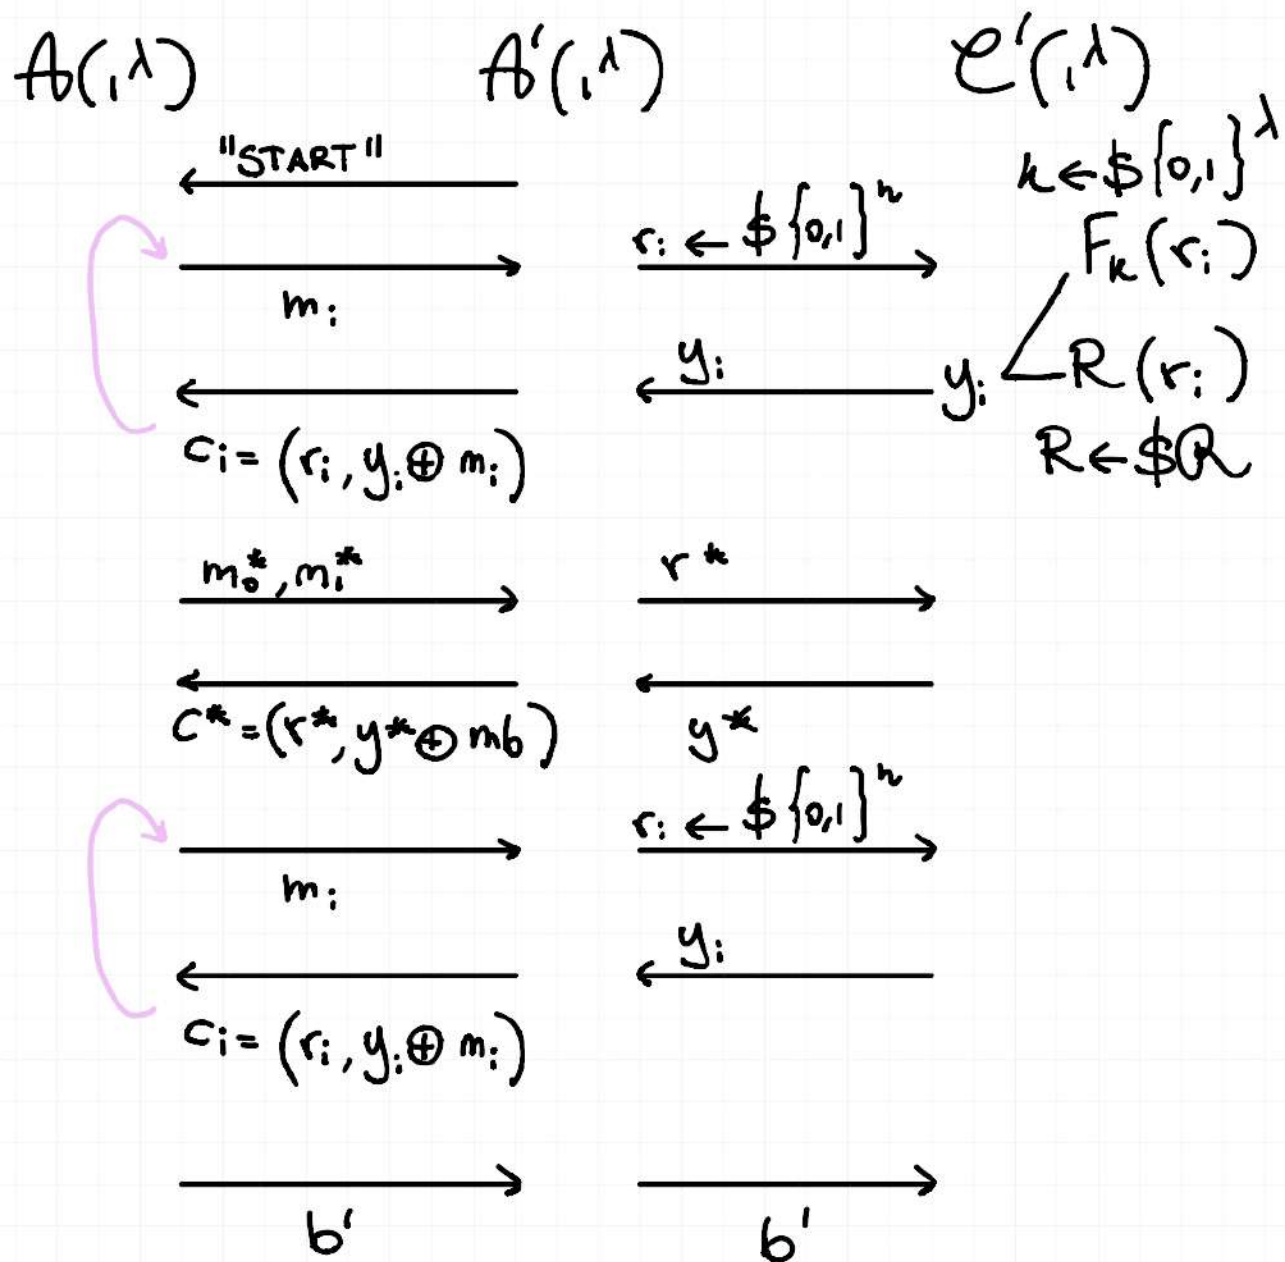 A(1^λ) A'(1^λ) C'(1^λ)
"START"
k ← $ {0,1}^λ
r_i ← $ {0,1}^n
F_k(r_i)
m_i
y_i
y_i
R(r_i)
c_i = (r_i, y_i ⊕ m_i)
R ← $ R
m_0^*, m_1^*
r^*
c^* = (r^*, y^* ⊕ mb)
y^*
r_i ← $ {0,1}^n
m_i
y_i
c_i = (r_i, y_i ⊕ m_i)
b'
b'